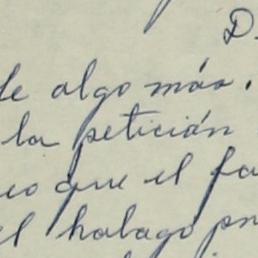 D.
de algo más.
la petición
eo que el fa
el halago pr